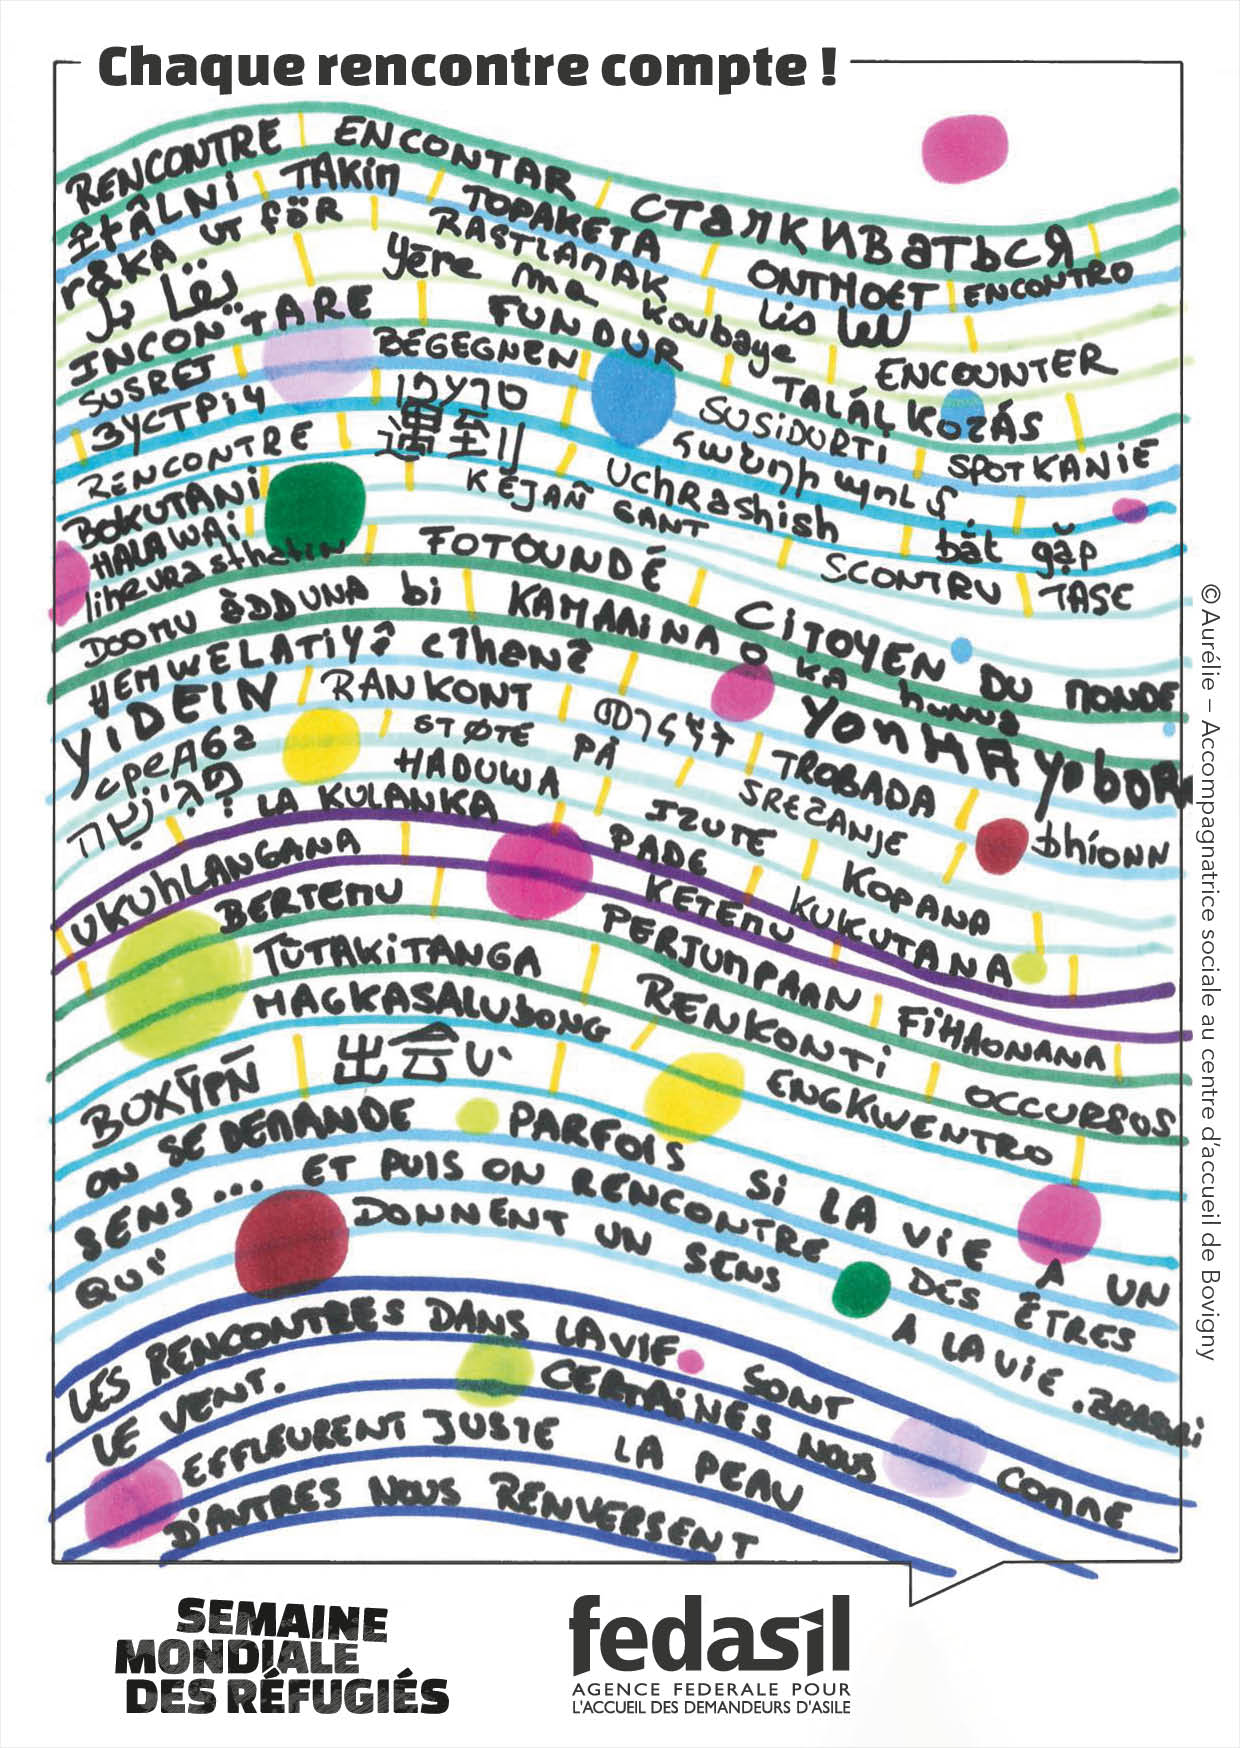 Chaque rencontre compte !
RENCONTRE ENCONTAR СТАЛКИВАТЬСЯ
TAKIM TOPAKETA ONTMOET ENCONTRO
RÅKA UT FÖR RASTLAMAK
yēre ma koubaye ENCOUNTER
INCONTARE FUNDUR TALÁLKOZÁS
SUSRET BEGEGNEN SUSIDURTI SPOTKANIE
ЗУСТРІЧ
RENCONTRE 遇到 Uchrashish bắt gặp
BOKUTANI KEJAÑ GANT SCONTRU TASE
HALAWAI
FOTOUNDÉ CITOYEN DU MONDE
DOOMU ÀDDUNA bi KAMANINA O KA
HEMWELATIYÊ CÎHANÊ
YIDEIN RANKONT TROBADA
STØTE PÅ SREČANJE bhíonn
פגישה LA KULANKA HADUWA IZUTE KOPANA
UKUHLANGANA PADE KUKUTANA
BERTEMU KETEMU
TŪTAKITANGA PERJUMPAAN FIHAONANA
MAGKASALUBONG RENKONTI OCCURSOS
出会い ENGKWENTRO
ON SE DEMANDE PARFOIS SI LA VIE A UN
SENS... ET PUIS ON RENCONTRE DES ÊTRES
QUI DONNENT UN SENS A LA VIE. BRASSAÏ
LES RENCONTRES DANS LA VIE SONT COMME
LE VENT. CERTAINES NOUS
EFFLEURENT JUSTE LA PEAU
D'AUTRES NOUS RENVERSENT
© Aurélie – Accompagnatrice sociale au centre d'accueil de Bovigny
SEMAINE
MONDIALE
DES RÉFUGIÉS
fedasil
AGENCE FEDERALE POUR
L'ACCUEIL DES DEMANDEURS D'ASILE